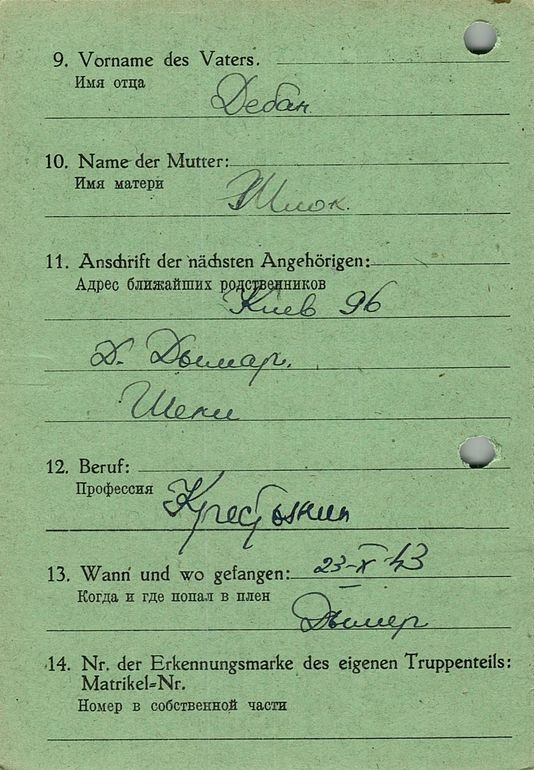 9. Vorname des Vaters.
Имя отца
Дебан
10. Name der Mutter:
Имя матери
Шлок.
11. Anschrift der nächsten Angehörigen:
Адрес ближайших родственников
Киев 96
Д. Дымар.
Шеки
12. Beruf:
Профессия
Крестьянин
13. Wann und wo gefangen: 23-X-43
Когда и где попал в плен
Дымер
14. Nr. der Erkennungsmarke des eigenen Truppenteils:
Matrikel=Nr.
Номер в собственной части